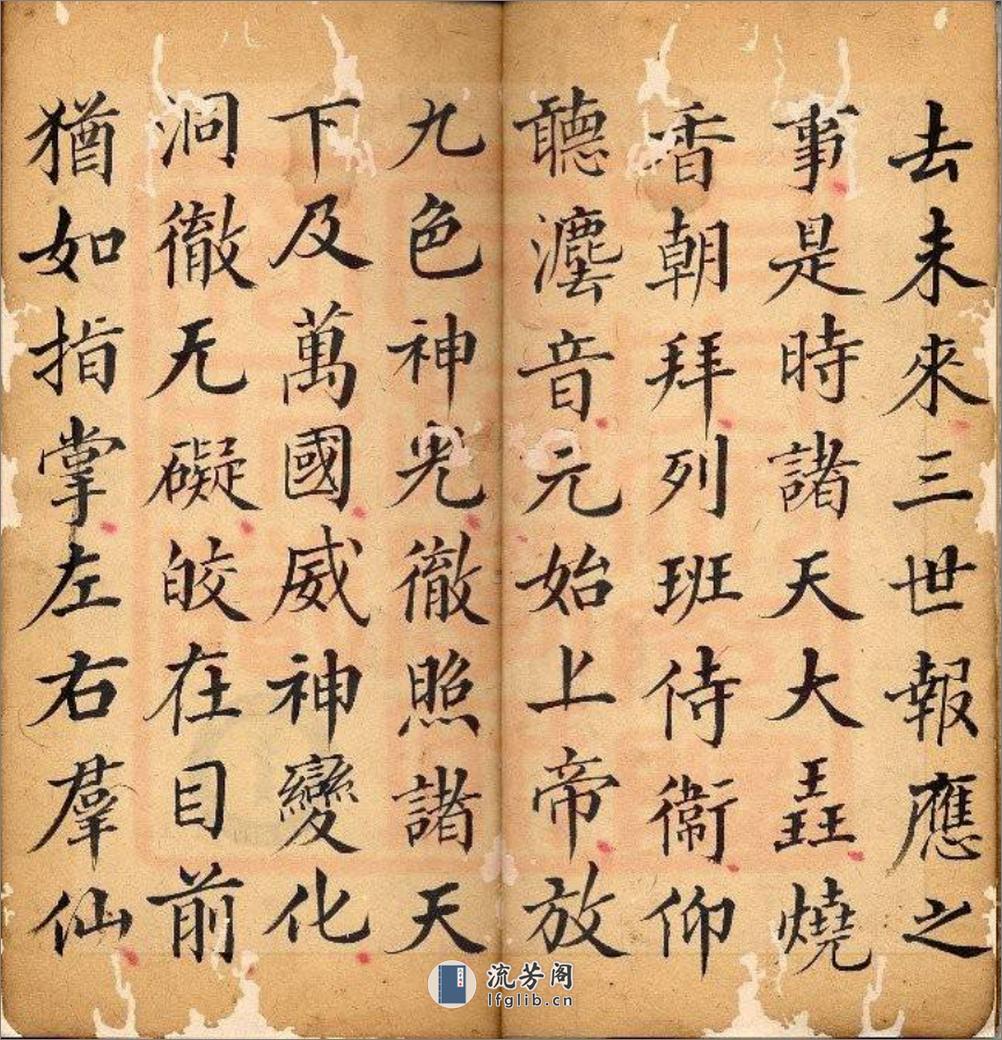 去未來三世報應之
事是時諸天大燒
香朝拜列班侍衛仰
聽灋音元始上帝放
九色神光徹照諸天
下及萬國威神變化
洞徹无礙皎在目前
猶如指掌左右羣仙
流芳阁
lfglib.cn